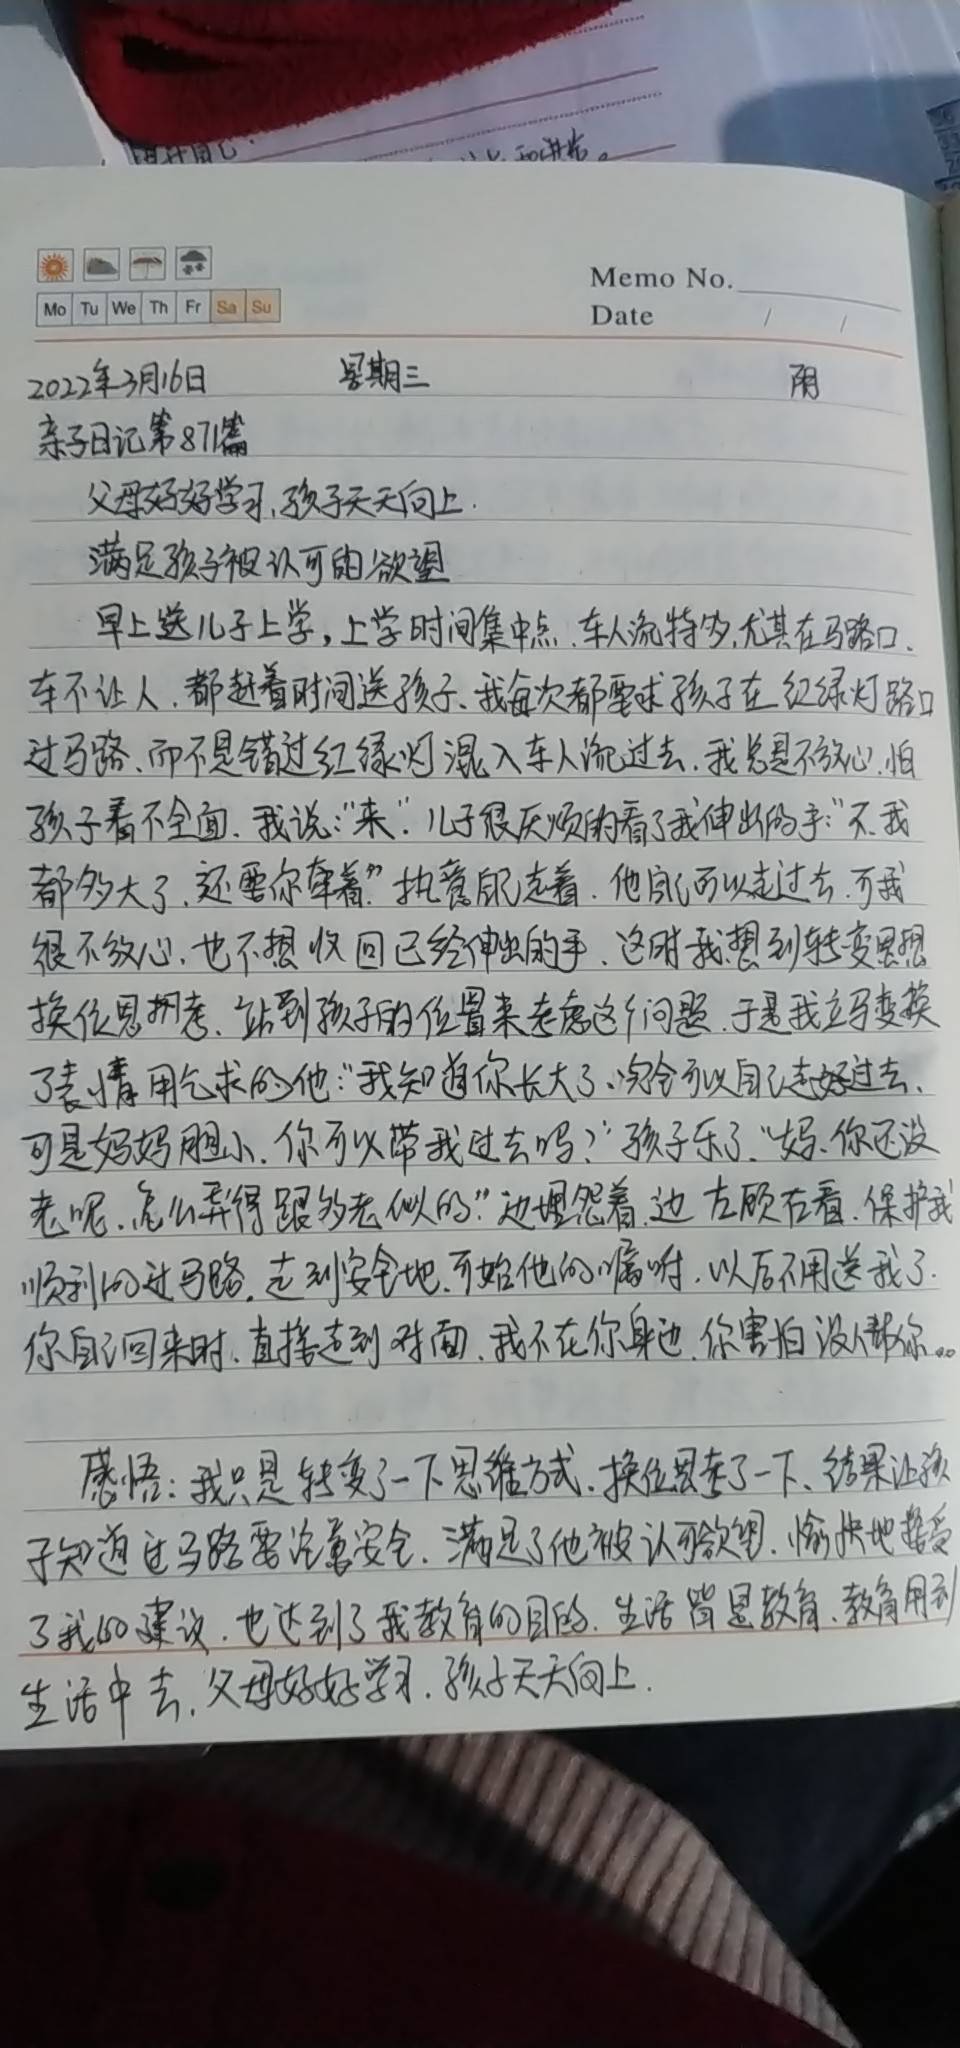 和进步。
Memo No.
Mo Tu We Th Fr Sa Su
Date / /
2022年3月16日 星期三 阴
亲子日记第871篇
父母好好学习,孩子天天向上.
满足孩子被认可的欲望
早上送儿子上学,上学时间集中点、车人流特多,尤其在马路口、
车不让人、都赶着时间送孩子、我每次都要求孩子在红绿灯路口
过马路、而不是错过红绿灯混入车人流过去、我总是不放心、怕
孩子看不全面、我说:"来". 儿子很厌烦的看了我伸出的手:"不、我
都多大了、还要你牵着" 执意自己走着、他自己可以走过去、可我
很不放心、也不想收回已经伸出的手、这时我想到转变思想
换位思考、站到孩子的位置来考虑这个问题、于是我立马变换
了表情用乞求的他:"我知道你长大了、完全可以自己走好过去、
可是妈妈胆小、你可以带我过去吗?" 孩子乐了、"妈、你还没
老呢、怎么弄得跟多老似的" 边埋怨着、边左顾右看、保护我
顺利的过马路、走到安全地、开始他的嘱咐、以后不用送我了、
你自己回来时、直接走到对面、我不在你身边、你害怕没人帮你...
感悟:我只是转变了一下思维方式、换位思考了一下、结果让孩
子知道过马路要注意安全、满足了他被认可欲望、愉快地接受
了我的建议、也达到了我教育的目的、生活皆是教育、教育用到
生活中去、父母好好学习、孩子天天向上.